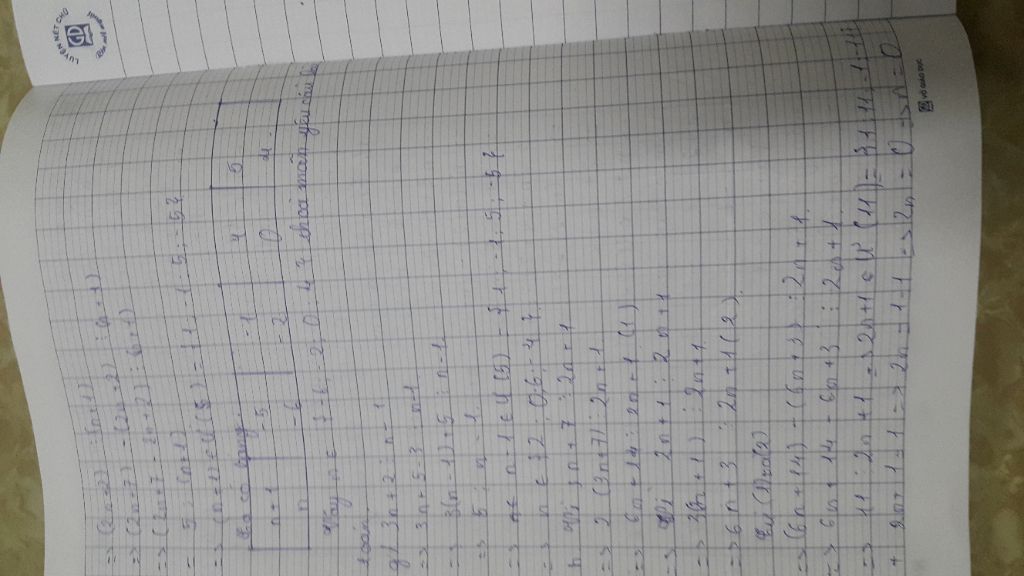 LUYỆN NÉT CHỮ
GD
=> (2n+2) ⋮ (n+1)
=> (2n+7) - (2n+2) ⋮ (n+1)
=> (2n+7 - 2n+2) ⋮ (n+1)
=> 5 ⋮ (n+1)
=> (n+1) ∈ Ư(5) = {1; -1; 5; -5}
Ta có bảng:
n+1 -5 -1 1 5
n -6 -2 0 4
Vậy n ∈ {-6; -2; 0; 4} thoả mãn yêu cầu bài
toán.
g) 3n+2 ⋮ n-1
=> 3n+5-3 ⋮ n-1
=> 3(n-1)+5 ⋮ n-1
=> 5 ⋮ n-1
=> n-1 ∈ Ư(5) = {1; -1; 5; -5}
=> n ∈ {2; 0; 6; -4}
h Vì 3n+7 ⋮ 2n+1
=> 2(3n+7) ⋮ 2n+1
=> 6n+14 ⋮ 2n+1 (1)
Vì 2n+1 ⋮ 2n+1
=> 3(2n+1) ⋮ 2n+1
=> 6n+3 ⋮ 2n+1 (2)
Từ (1) và (2)
=> (6n+14) - (6n+3) ⋮ 2n+1
=> 6n+14 - 6n+3 ⋮ 2n+1
=> 11 ⋮ 2n+1 => 2n+1 ∈ Ư(11) = {1; 11; -1; -11}
+ 2n+1=1 => 2n=1-1 => 2n=0 => n=0